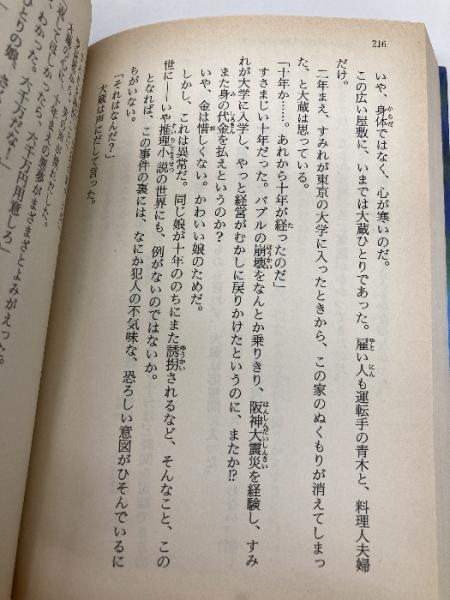 216
いや、身体ではなく、心が寒いのだ。
この広い屋敷に、いまでは大蔵ひとりであった。雇い人も運転手の青木と、料理人夫婦
だけ。
二年まえ、すみれが東京の大学に入ったときから、この家のぬくもりが消えてしまっ
た、と大蔵は思っている。
「十年か……。あれから十年が経ったのだ」
すさまじい十年だった。バブルの崩壊をなんとか乗りきり、阪神大震災を経験し、すみ
れが大学に入学し、やっと経営がむかしに戻りかけたというのに、またか!?
また身の代金を払えというのか？
いや、金は惜しくない。かわいい娘のためだ。
しかし、これは異常だ。同じ娘が十年ののちにまた誘拐されるなど、そんなこと、この
世に――いや推理小説の世界にも、例がないのではないか。
となれば、この事件の裏には、なにか犯人の不気味な、恐ろしい意図がひそんでいるに
ちがいない。
「それはなんだ？」
大蔵は声にだして言った。